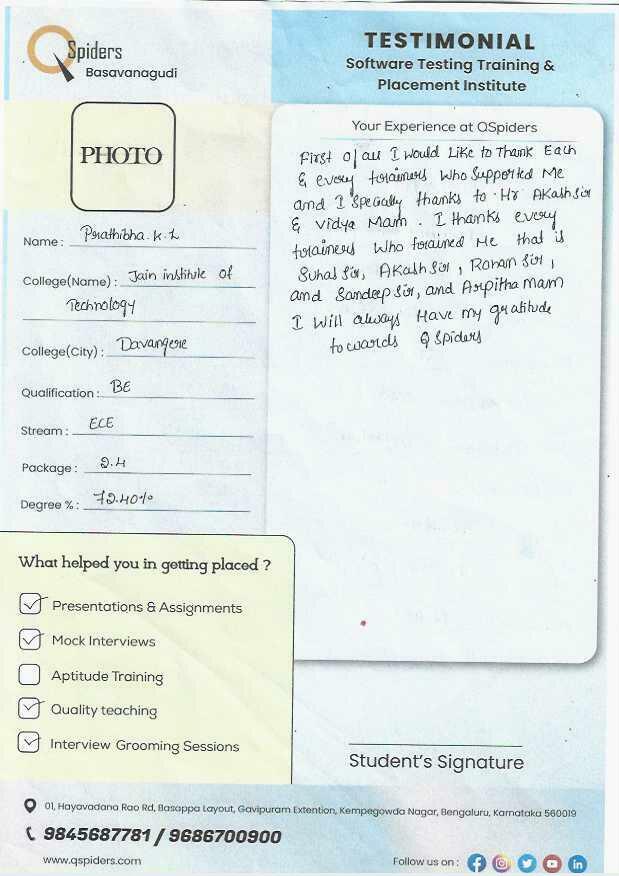 QSpiders
Basavanagudi
TESTIMONIAL
Software Testing Training &
Placement Institute
PHOTO
Name : Prathibha.K.L
College(Name) : Jain institute of
Technology
College(City) : Davangere
Qualification : BE
Stream : ECE
Package : 2.4
Degree % : 72.40%
Your Experience at QSpiders
First of all I would Like to Thank Each
& every trainers who supported Me
and I specially thanks to Hr Akash sir
& Vidya Mam. I thanks every
trainers who trained Me that is
Suhas sir, Akash sir, Rohan sir,
and Sandeep sir, and Arpitha mam
I Will always Have my gratitude
towards Q Spiders
What helped you in getting placed ?
Presentations & Assignments
Mock Interviews
Aptitude Training
Quality teaching
Interview Grooming Sessions
Student's Signature
01, Hayavadana Rao Rd, Basappa Layout, Gavipuram Extention, Kempegowda Nagar, Bengaluru, Karnataka 560019
9845687781 / 9686700900
www.qspiders.com
Follow us on :